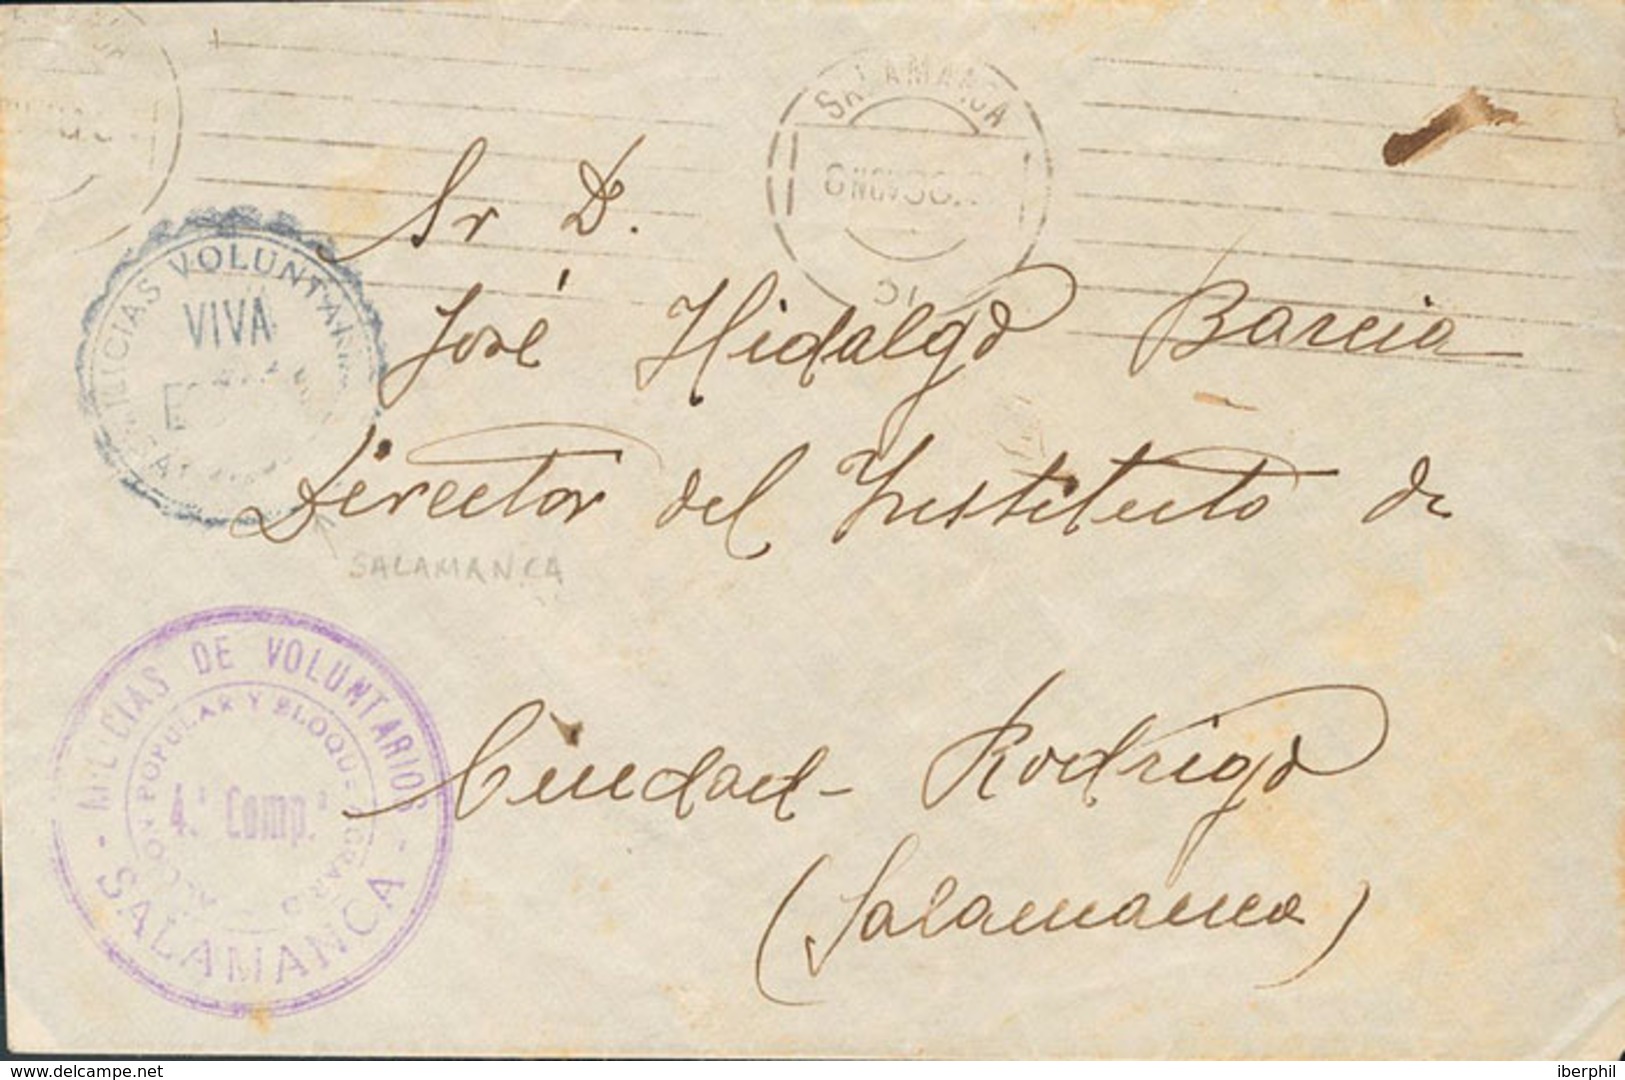 SALAMANCA
6 NOV 36
MILICIAS VOLUNTARIAS
VIVA
Sr D.
José Hidalgo Barcia
Director del Instituto de
SALAMANCA
MILICIAS DE VOLUNTARIOS
ACCION POPULAR Y BLOQUE AGRARIO
4.ª Comp.ª
SALAMANCA
Ciudad-Rodrigo
(Salamanca)
www.delcampe.net
iberphil